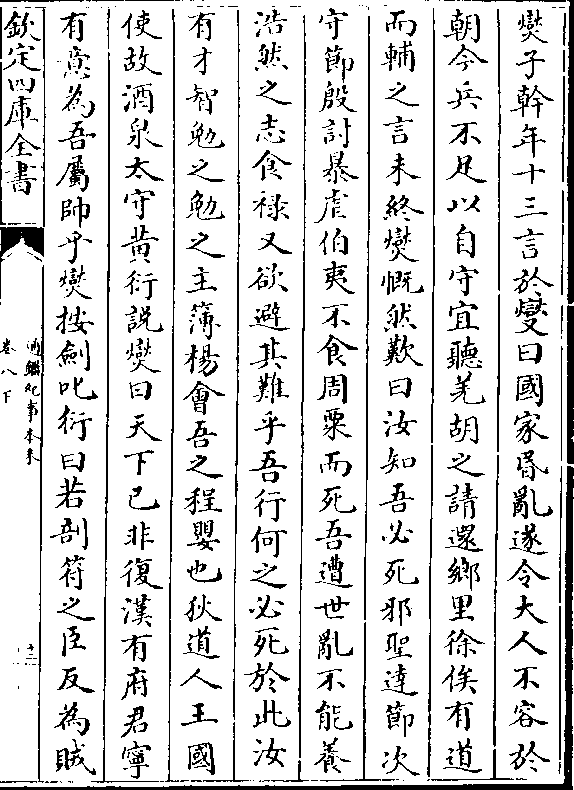 燮子幹年十三言於燮曰國家昏亂遂令大人不容於
朝今兵不足以自守宜聽羌胡之請還鄉里徐俟有道
而輔之言未終燮慨然歎曰汝知吾必死邪聖達節次
守節殷討暴虐伯夷不食周粟而死吾遭世亂不能養
浩然之志食祿又欲避其難乎吾行何之必死於此汝
有才智勉之勉之主簿楊會吾之程嬰也狄道人王國
使故酒泉太守黄衍説燮曰天下已非復漢有府君寧
有意為吾屬帥乎燮按劍叱衍曰若剖符之臣反為賊
欽定四庫全書
通鑑紀事本末
卷八下
十三